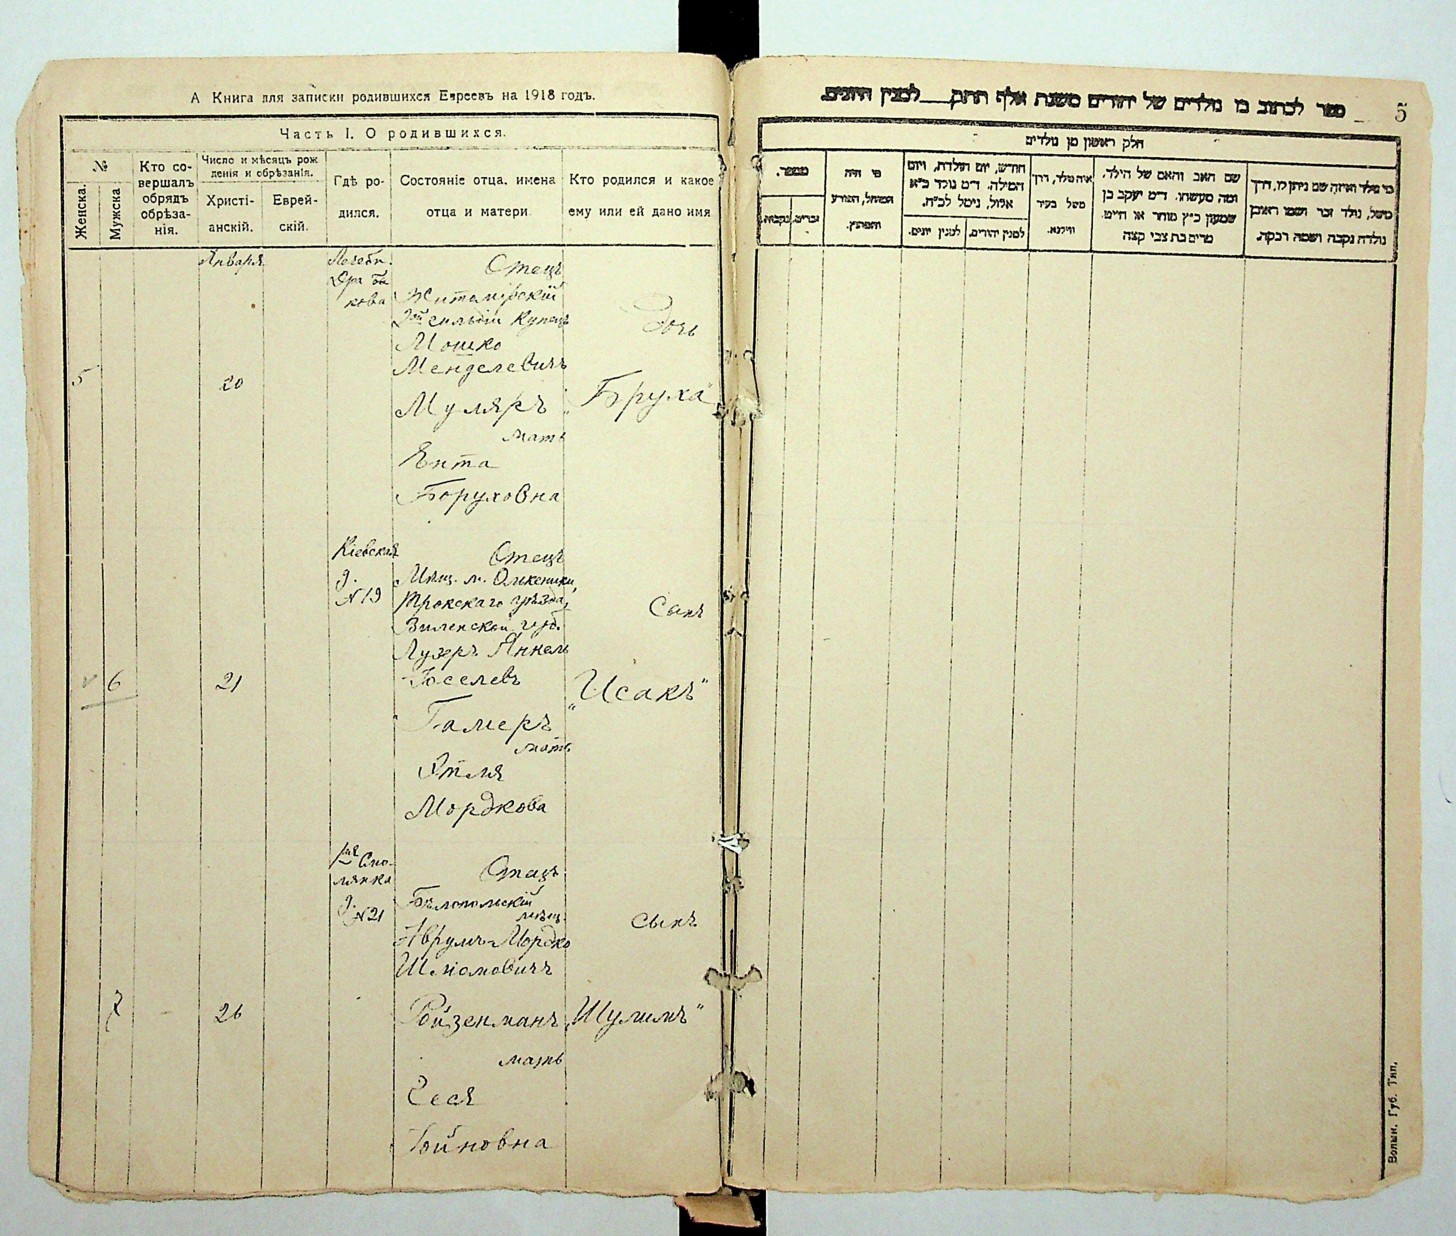 А Книга для записки родившихся Евреевъ на 1918 годъ.
Часть I. О родившихся.
№
Женска.
Мужска
Кто со-
вершалъ
обрядъ
обрѣза-
нія.
Число и мѣсяцъ рож
денія и обрѣзанія.
Христі-
анскій.
Еврей-
скій.
Гдѣ ро-
дился.
Состояніе отца, имена
отца и матери
Кто родился и какое
ему или ей дано имя
Января
Лечебн.
кова
Отецъ
Житомірскій
Купецъ
Мошко
Менделевичъ
Муляръ
мать
Ента
Боруховна
Дочь
„Бруха"
5
20
Кіевская
д.
№ 19
Отецъ
Мѣщ. м. Олькеники,
Трокскаго уѣзда,
Виленской губ.
Лузеръ Янкель
Іоселевъ
Гамеръ
мать
Этля
Мордкова
Сынъ
„Исакъ"
6
21
д. №21
Отецъ
Бѣлопольскій
мѣщ.
Аврумъ-Мордко
Шліомовичъ
Ройзенманъ
мать
Сеся
Хойновна
сынъ
„Шулимъ"
7
26
ספר לכתוב בו נולדים של יהודים משנת אלף תתק__ למנין היונים.
5
חלק ראשון מן נולדים
מספר.
נקבות.
זכרים.
מי היה
המוהל, הפורע
והמוצץ.
חודש, יום הולדת, ויום
המילה. ד״מ נולד כ״א
אלול, נימל לכ״ח.
למנין יונים.
למנין יהודים.
איה נולד, דרך
משל בעיר
ווילנא.
שם האב והאם של הילד,
ומה מעשהו. ד״מ יעקב בן
שמעון כ״ץ סוחר או חייט.
מרים בת צבי קצה
מי נולד ואיזה שם ניתן לו, דרך
משל, נולד זכר ושמו ראובן
נולדה נקבה ושמה רבקה.
Волын. Губ. Тип.